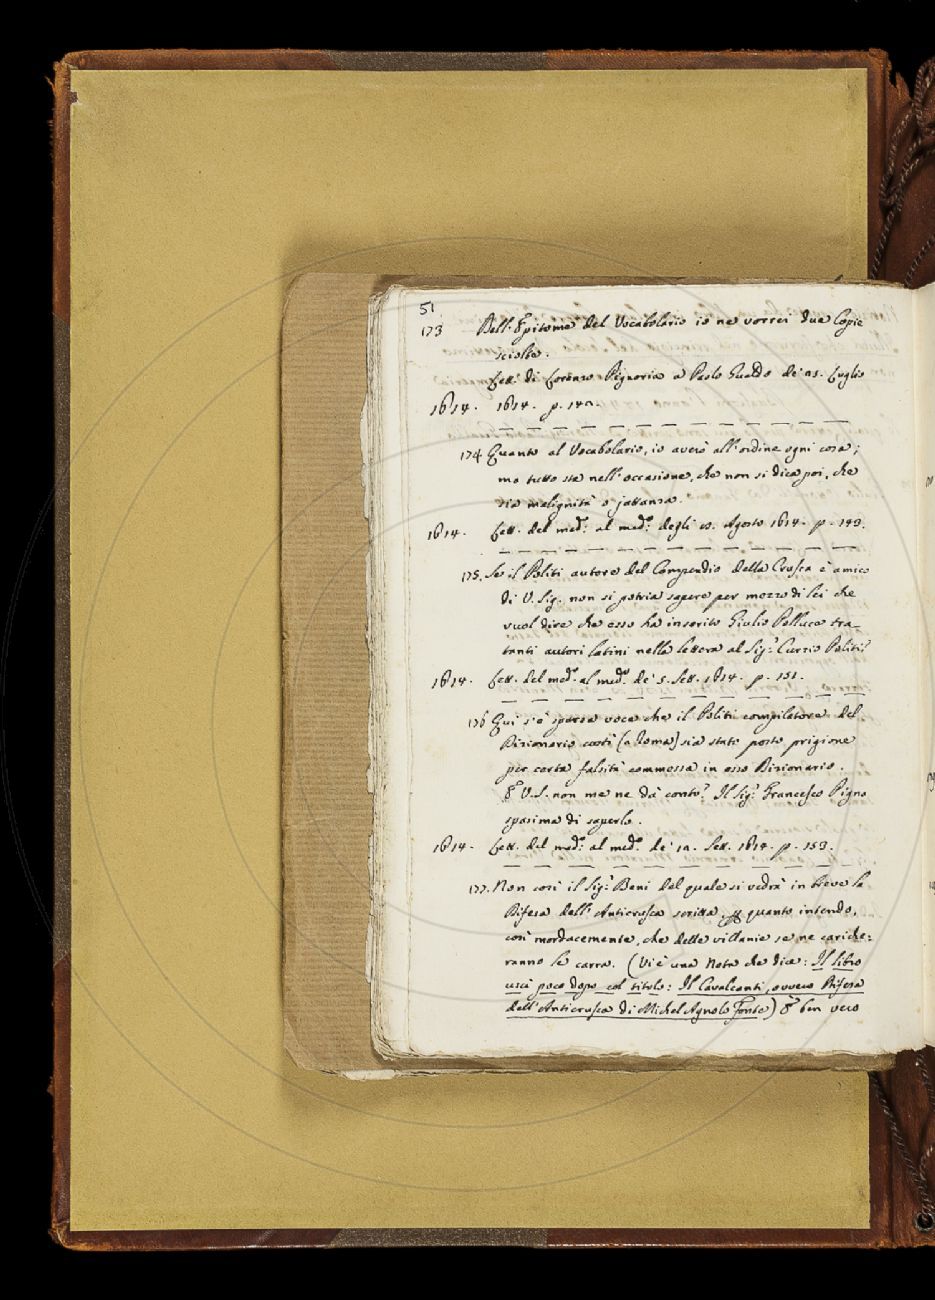 51
173 Dell'Epitome del Vocabolario io ne vorrei due Copie
sciolte.
Lett. di Lorenzo Pignoria a Paolo Gualdo de' 25. Luglio
1614. 1614. p. 142.
174 Quanto al Vocabolario, io averò all'ordine ogni cosa;
ma tutto sta nell'occasione, che non si dica poi, che
sia malignità o jattanza.
1614. Lett. del med.º al med.º degli Agosto 1614. p. 143.
175. Se il Politi autore del Compendio della Crusca è amico
di V. Sig. non si potria sapere per mezzo di lei che
vuol dire che esso ha inserito Giulio Polluce tra
tanti autori latini nella lettera al Sig.r Curzio Politi?
1614. Lett. del med.º al med.º de' 5. Sett. 1614. p. 151.
176 Qui s'è sparsa voce che il Politi compilatore del
Dizionario costì (a Roma) sia stato posto prigione
per certa falsità commessa in esso Dizionario.
E V.S. non me ne dà conto? Il Sig.r Francesco Pigna
spasima di saperlo.
1614. Lett. del med.º al med.º de' 12. Sett. 1614. p. 153.
177. Non così il Sig.r Beni del quale si vedrà in breve la
Difesa dell'Anticrusca scritta, per quanto intendo,
così mordacemente, che delle villanie se ne cariche:
ranno le carra. (Vi è una Nota che dice: Il libro
uscì poco dopo col titolo: Il Cavalcanti, ovvero Difesa
dell'Anticrusca di Michel Agnolo Fonte) E ben vero